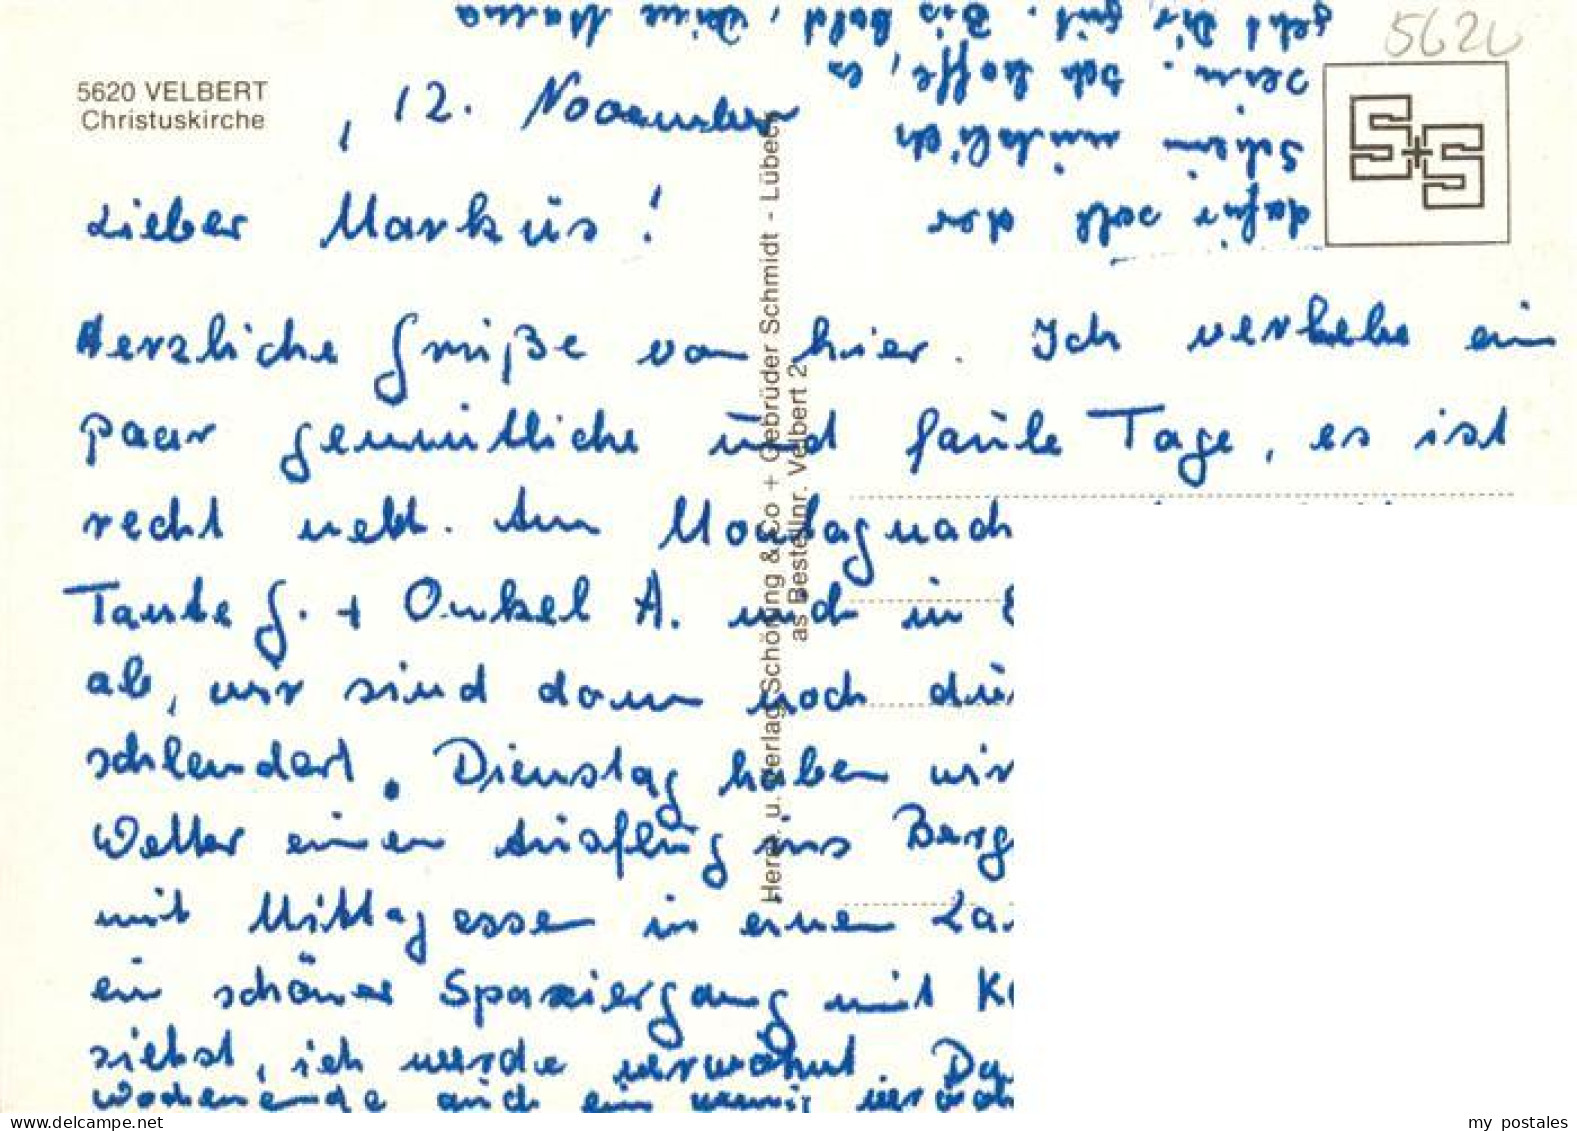 5620
5620 VELBERT
Christuskirche
, 12. November
Lieber Markus!
Herzliche Grüße von hier. Ich verlebe ein
paar gemütliche und faule Tage, es ist
recht nett. Am Montag nach
Tante G. + Onkel A. und in
ab, wir sind dann noch
schlendert. Dienstag haben wir
Wetter einen Ausflug ins Berg
mit Mittagessen in einem La
ein schöner Spaziergang mit K
siehst, ich werde verwöhnt. Da
Wochenende auch ein wenig verwöh
dafür soll der
Schirm nützlich
sein. Ich hoffe, es
geht Dir gut. Bis bald, Deine Mama
Hersg. u. Verlag Schöning & Co + Gebrüder Schmidt - Lübeck
as Bestellnr. Velbert 2
S+S
my postales